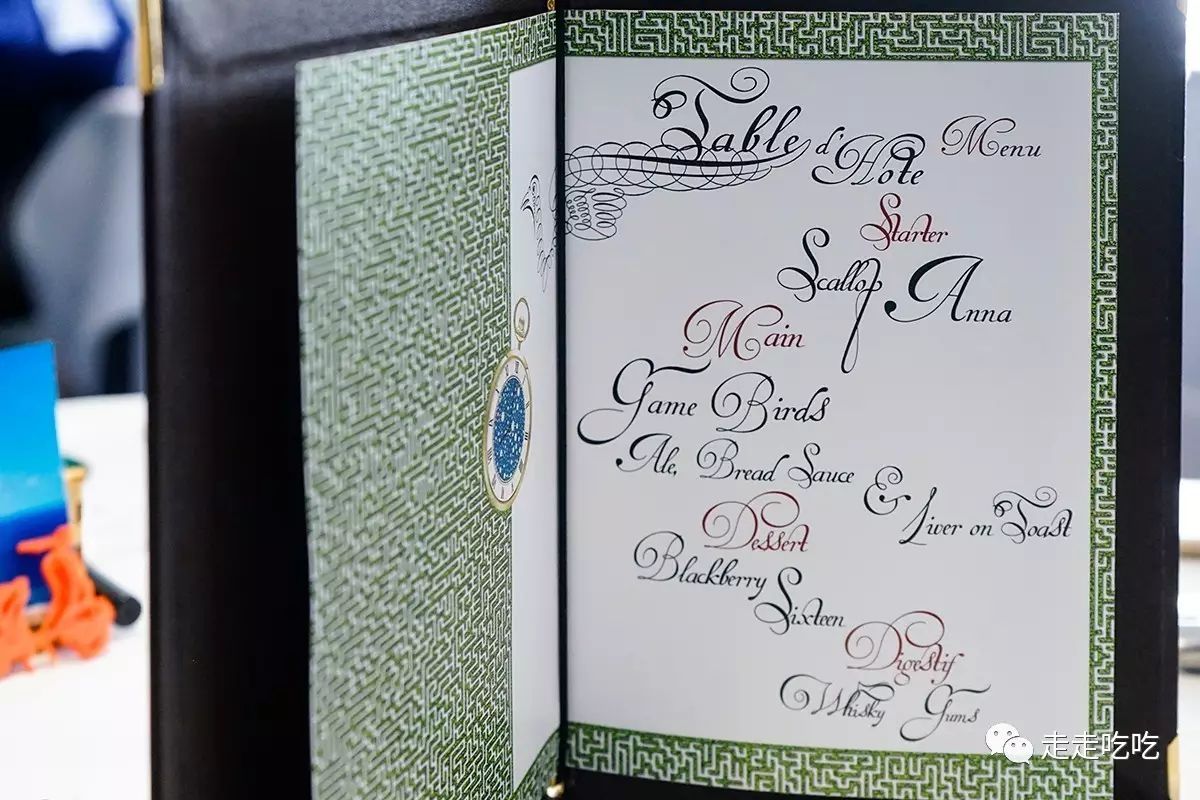 Table d'Hote Menu
Starter
Scallop Anna
Main
Game Birds
Ale, Bread Sauce & Liver on Toast
Dessert
Blackberry Sixteen
Digestif
Whisky Gums
走走吃吃